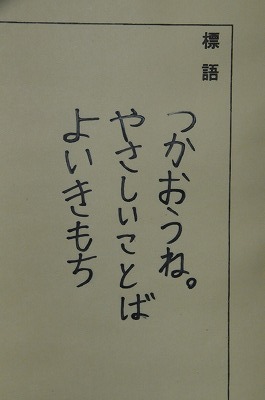 標語
つかおうね。
やさしいことば
よいきもち